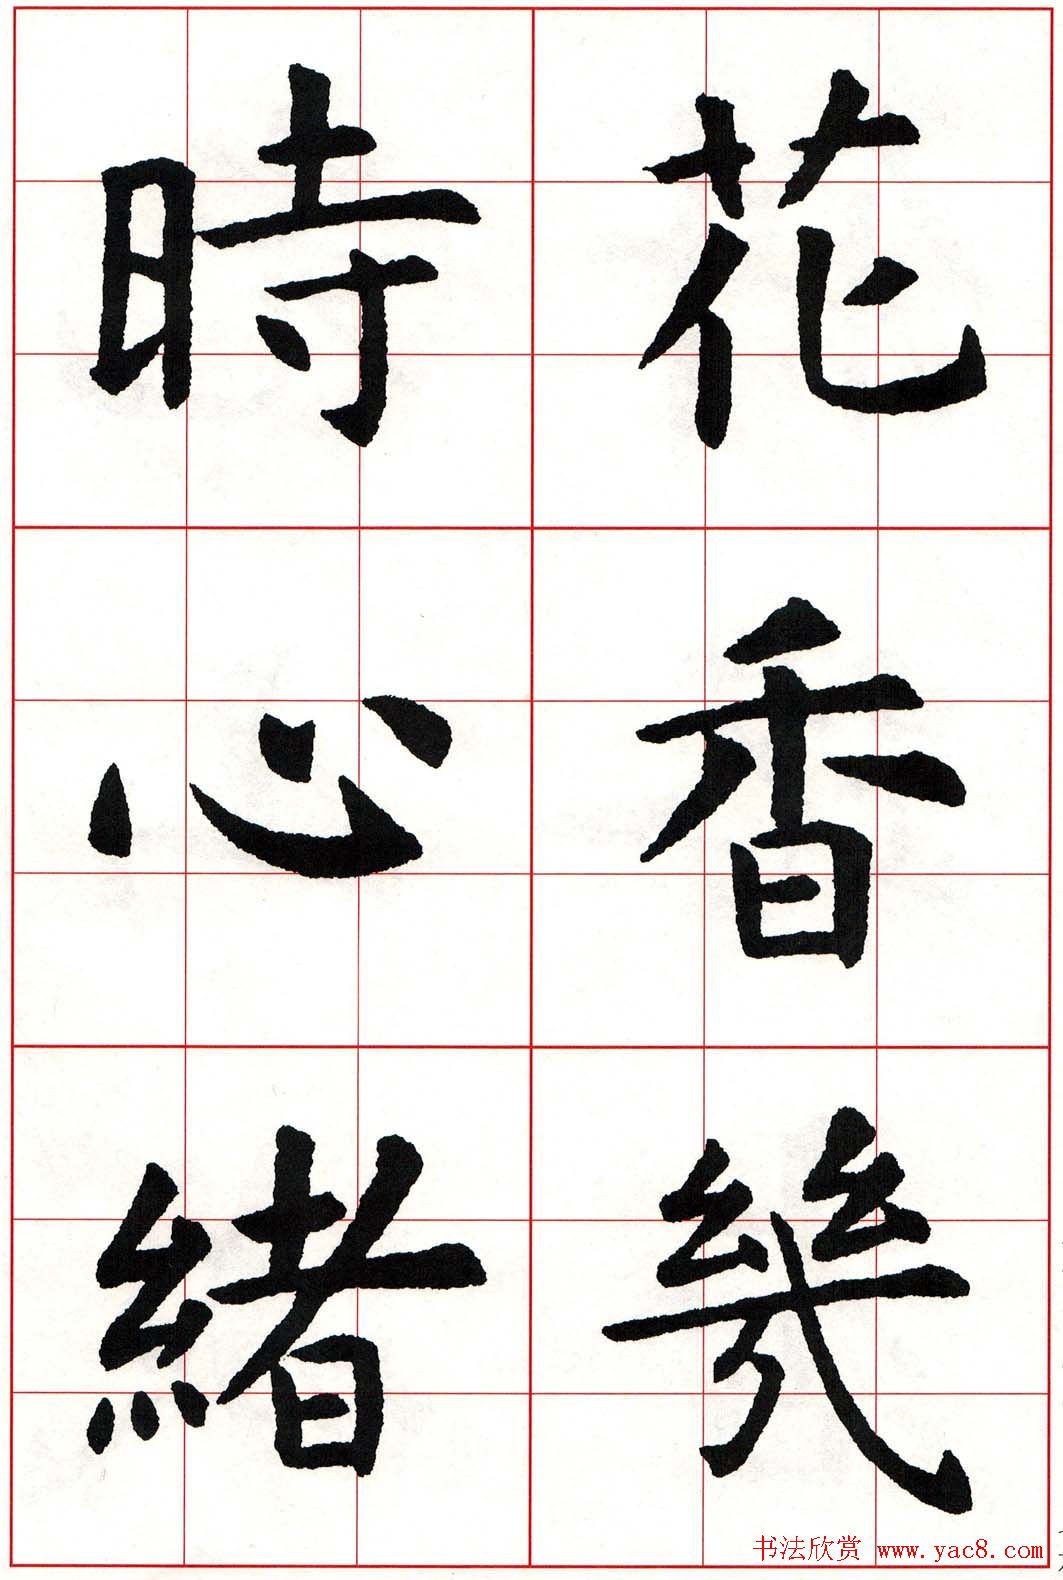 花香幾
時心緒
书法欣赏 www.yac8.com